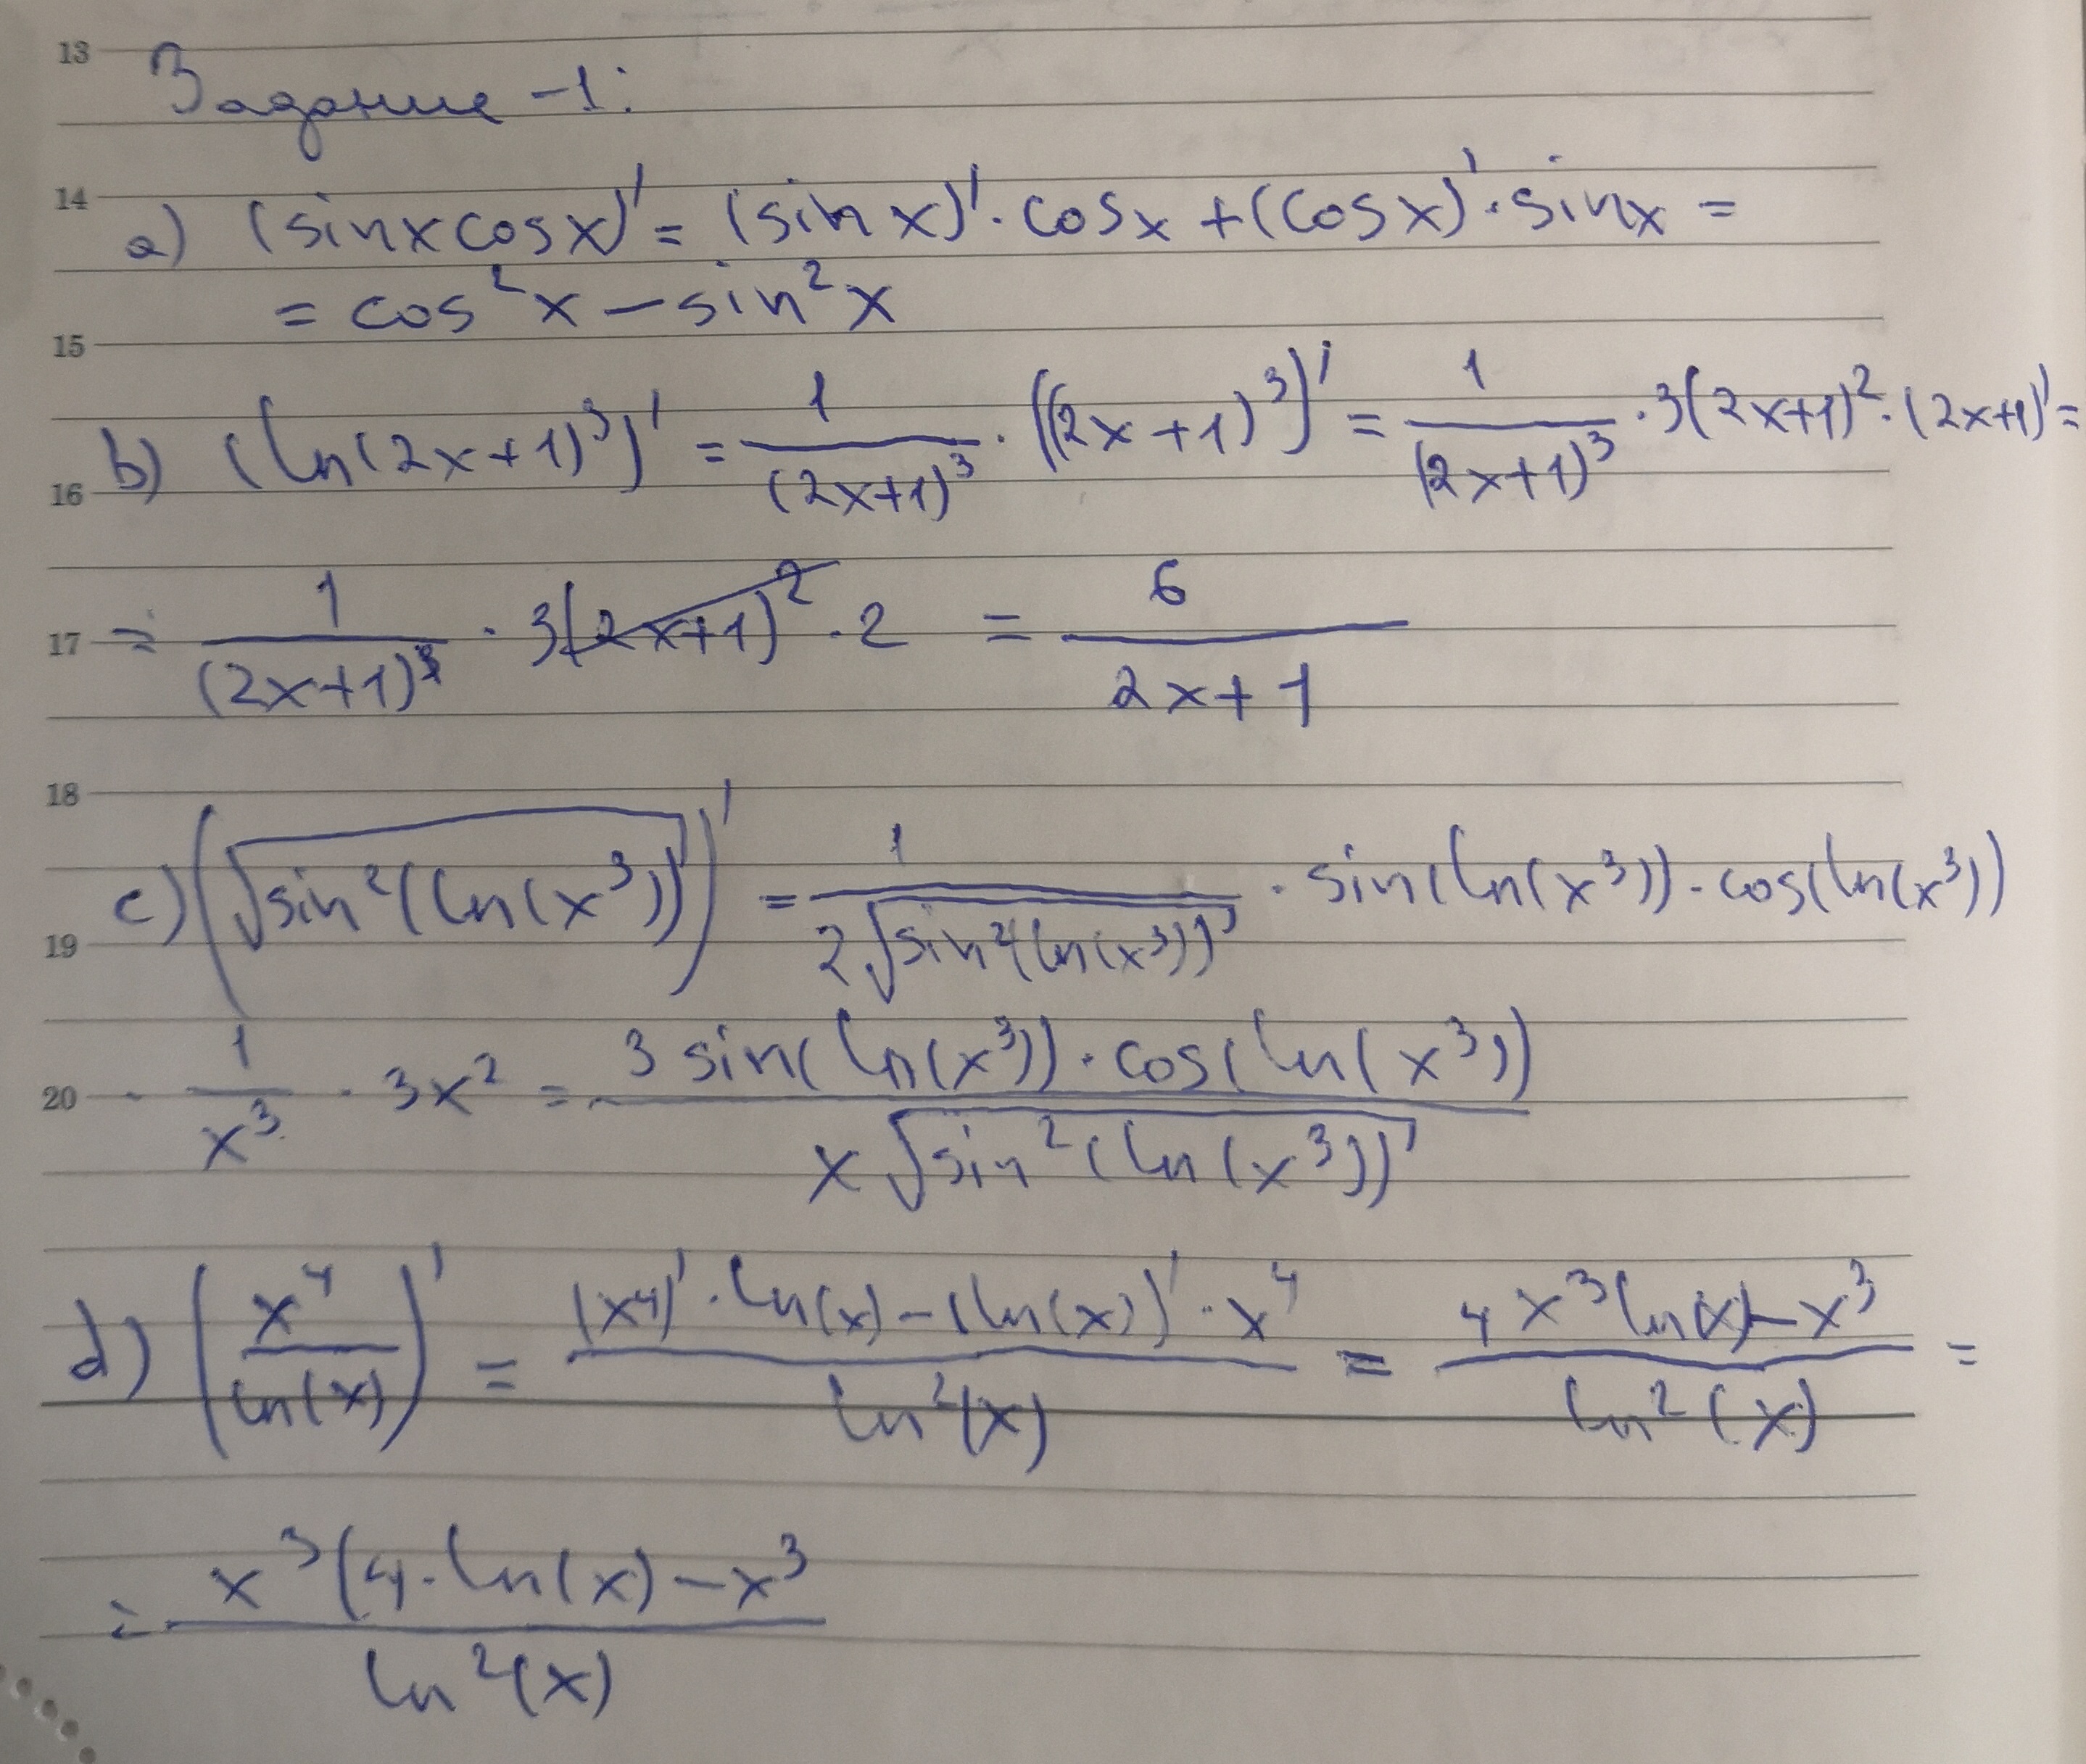 13
Задание -1:
14
a) (sinxcosx)' = (sin x)' · cosx + (cosx)' · sinx =
= cos²x − sin²x
15
b) (ln(2x+1)³)' = 1/(2x+1)³ · ((2x+1)³)' = 1/(2x+1)³ · 3(2x+1)² · (2x+1)' =
16
17 = 1/(2x+1)³ · 3(2x+1)² · 2 = 6/(2x+1)
18
c) (√(sin²(ln(x³))))' = 1/(2√(sin²(ln(x³)))) · sin(ln(x³)) · cos(ln(x³))
19
20 · 1/x³ · 3x² = 3 sin(ln(x³)) · cos(ln(x³))/(x√(sin²(ln(x³))))
d) (x⁴/ln(x))' = ((x⁴)' · ln(x) − (ln(x))' · x⁴)/ln²(x) = (4x³ln(x) − x³)/ln²(x) =
= x³(4·ln(x) − x³/ln²(x)